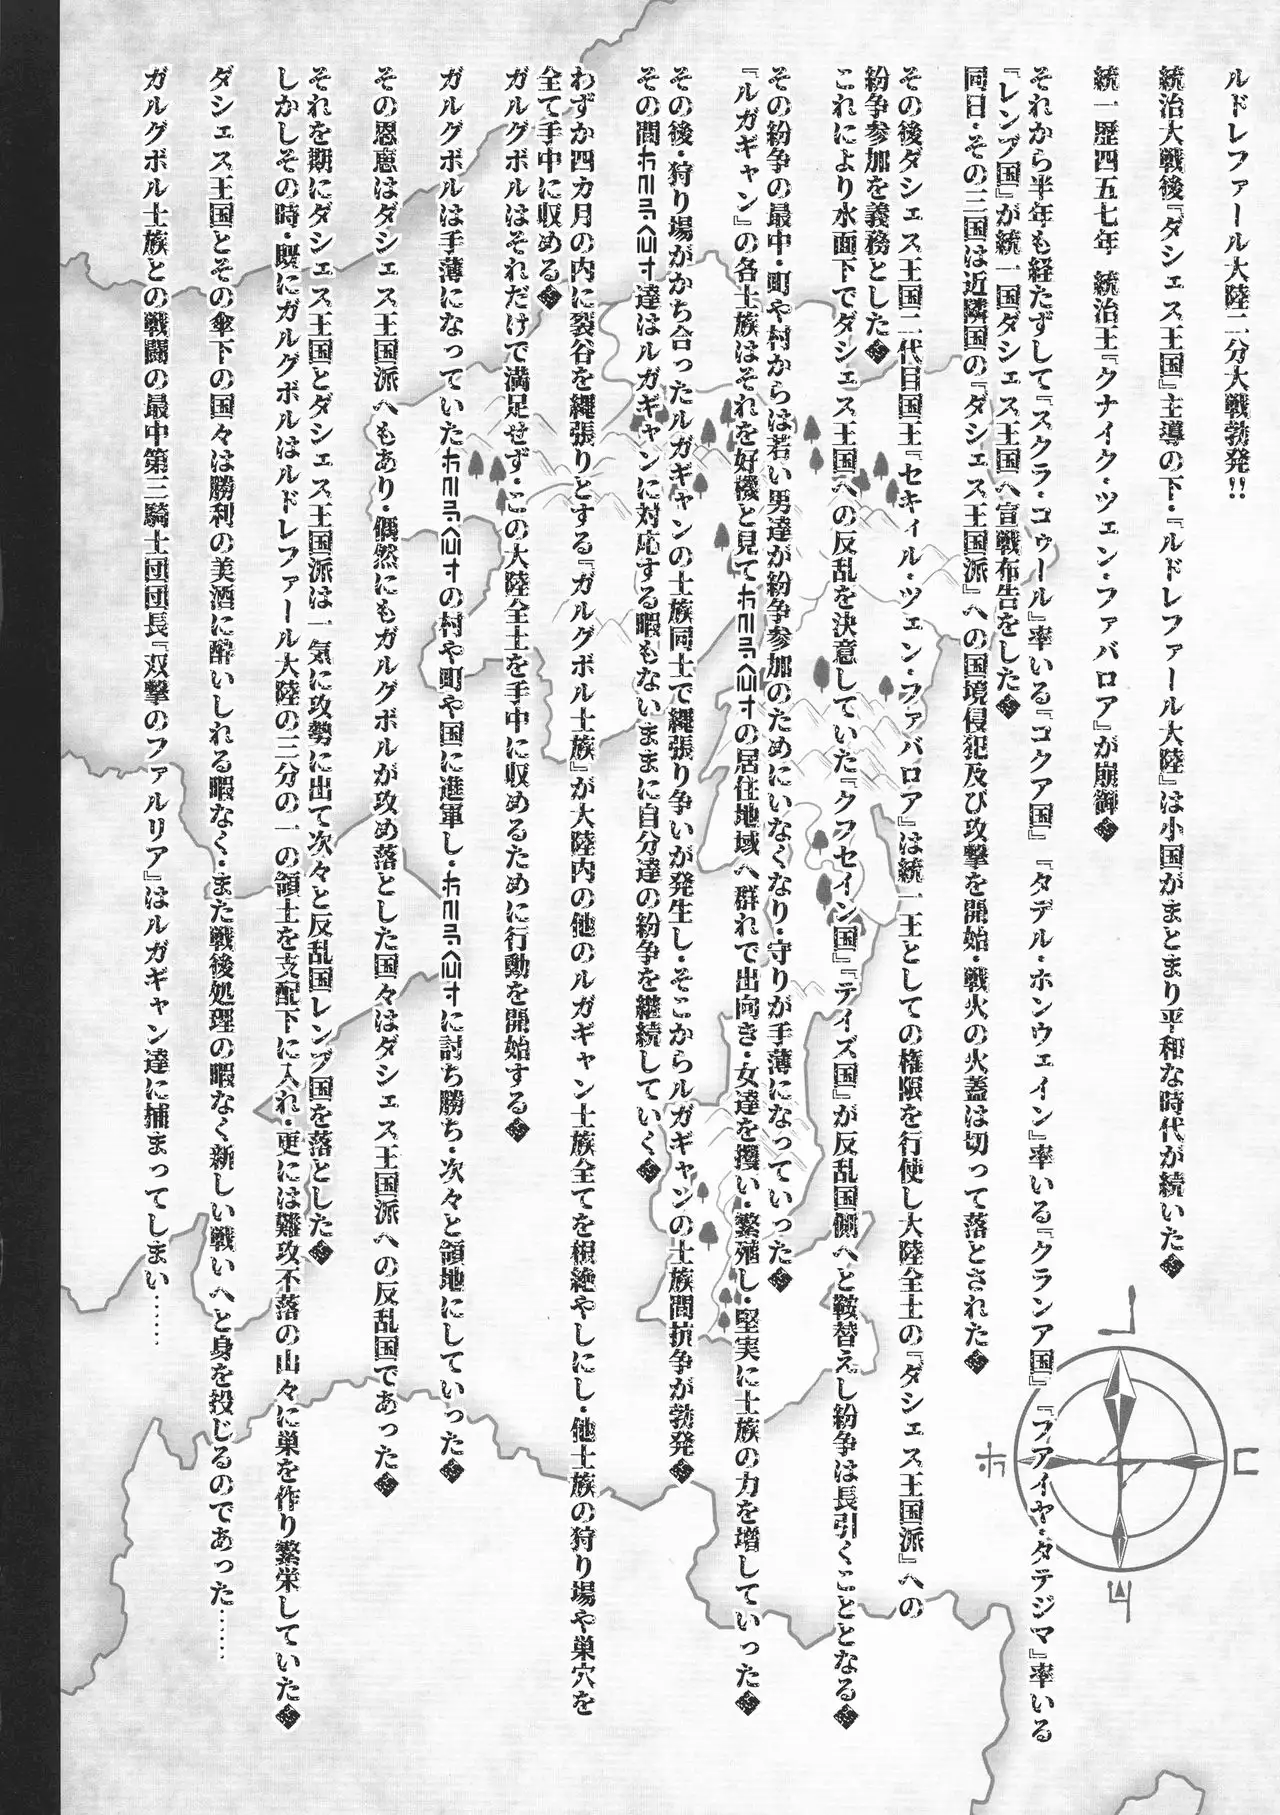 ルドレファール大陸二分大戦勃発!!
統治大戦後『ダシェス王国』主導の下・『ルドレファール大陸』は小国がまとまり平和な時代が続いた
統一歴四五七年 統治王『クナイク・ツェン・ファバロア』が崩御
それから半年も経たずして『スクラ・コゥール』率いる『コクア国』『タデル・ホンウェイン』率いる『クランア国』『フアイヤ・タテジマ』率いる
『レンブ国』が統一国ダシェス王国へ宣戦布告をした
同日・その三国は近隣国の『ダシェス王国派』への国境侵犯及び攻撃を開始・戦火の火蓋は切って落とされた
その後ダシェス王国二代目国王『セキィル・ツェン・ファバロア』は統一王としての権限を行使し大陸全土の『ダシェス王国派』への
紛争参加を義務とした
これにより水面下でダシェス王国への反乱を決意していた『クフセイン国』『テイズ国』が反乱国側へと鞍替えし紛争は長引くこととなる
その紛争の最中・町や村からは若い男達が紛争参加のためにいなくなり・守りが手薄になっていった
『ルガギャン』の各士族はそれを好機と見ての居住地域へ群れで出向き・女達を攫い・繁殖し・堅実に士族の力を増していった
その後・狩り場がかち合ったルガギャンの士族同士で縄張り争いが発生し・そこからルガギャンの士族間抗争が勃発
その間達はルガギャンに対応する暇もないままに自分達の紛争を継続していく
わずか四カ月の内に裂谷を縄張りとする『ガルグボル士族』が大陸内の他のルガギャン士族全てを根絶やしにし・他士族の狩り場や巣穴を
全て手中に収める
ガルグボルはそれだけで満足せず・この大陸全土を手中に収めるために行動を開始する
ガルグボルは手薄になっていたの村や町や国に進軍し・に討ち勝ち・次々と領地にしていった
その恩恵はダシェス王国派へもあり・偶然にもガルグボルが攻め落とした国々はダシェス王国派への反乱国であった
それを期にダシェス王国とダシェス王国派は一気に攻勢に出て次々と反乱国レンブ国を落とした
しかしその時・既にガルグボルはルドレファール大陸の三分の一の領土を支配下に入れ・更には難攻不落の山々に巣を作り繁栄していた
ダシェス王国とその傘下の国々は勝利の美酒に酔いしれる暇なく・また戦後処理の暇なく新しい戦いへと身を投じるのであった……
ガルグボル士族との戦闘の最中第三騎士団団長『双撃のファルリア』はルガギャン達に捕まってしまい……